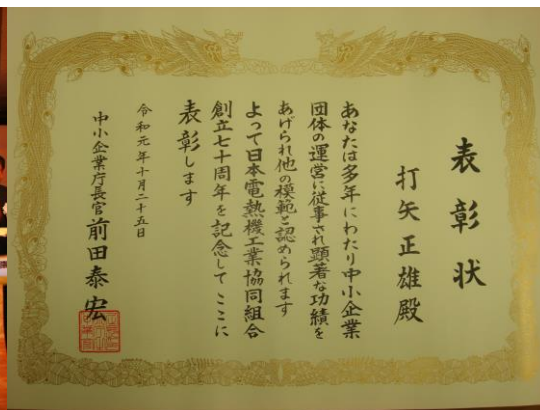 表彰状
打矢正雄殿
あなたは多年にわたり中小企業
団体の運営に従事され顕著な功績を
あげられ他の模範と認められます
よって日本電熱機工業協同組合
創立七十周年を記念してここに
表彰します
令和元年十月二十五日
中小企業庁長官 前田泰宏